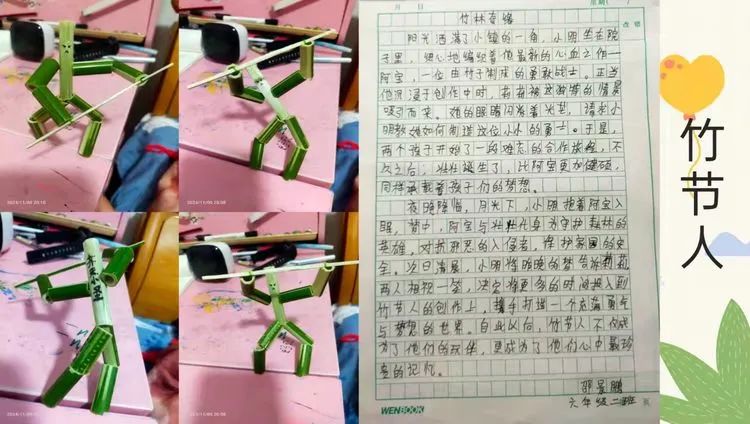 月 日
星期（ ）
竹林奇缘
改错
阳光洒满了小镇的一角，小明坐在院
子里，细心地编织着他最新的心血之作—
阿宝，一位由竹子制成的勇敢战士。正当
他沉浸于创作中时，莉莉被这新奇的情景
吸引而来。她的眼睛闪着光芒，请求小
明教她如何制造这位小小的勇士。于是，
两个孩子开始了一段难忘的合作旅程，不
久之后，壮壮诞生了，比阿宝更加健硕，
同样承载着孩子们的梦想。
夜幕降临，月光下，小明抱着阿宝入
眠，梦中，阿宝与壮壮化身为守护森林的
英雄，对抗邪恶的入侵者，保护家园的安
全。次日清晨，小明将昨晚的梦告诉莉莉，
两人相视一笑，决定将更多的时间投入到
竹节人的创作上，携手打造一个充满勇气
与梦想的世界。自此以后，竹节人不仅成
为了他们的玩伴，更成为了他们心中最珍
贵的记忆。
邵景鹏
六年级二班
WENBOOK
竹节人